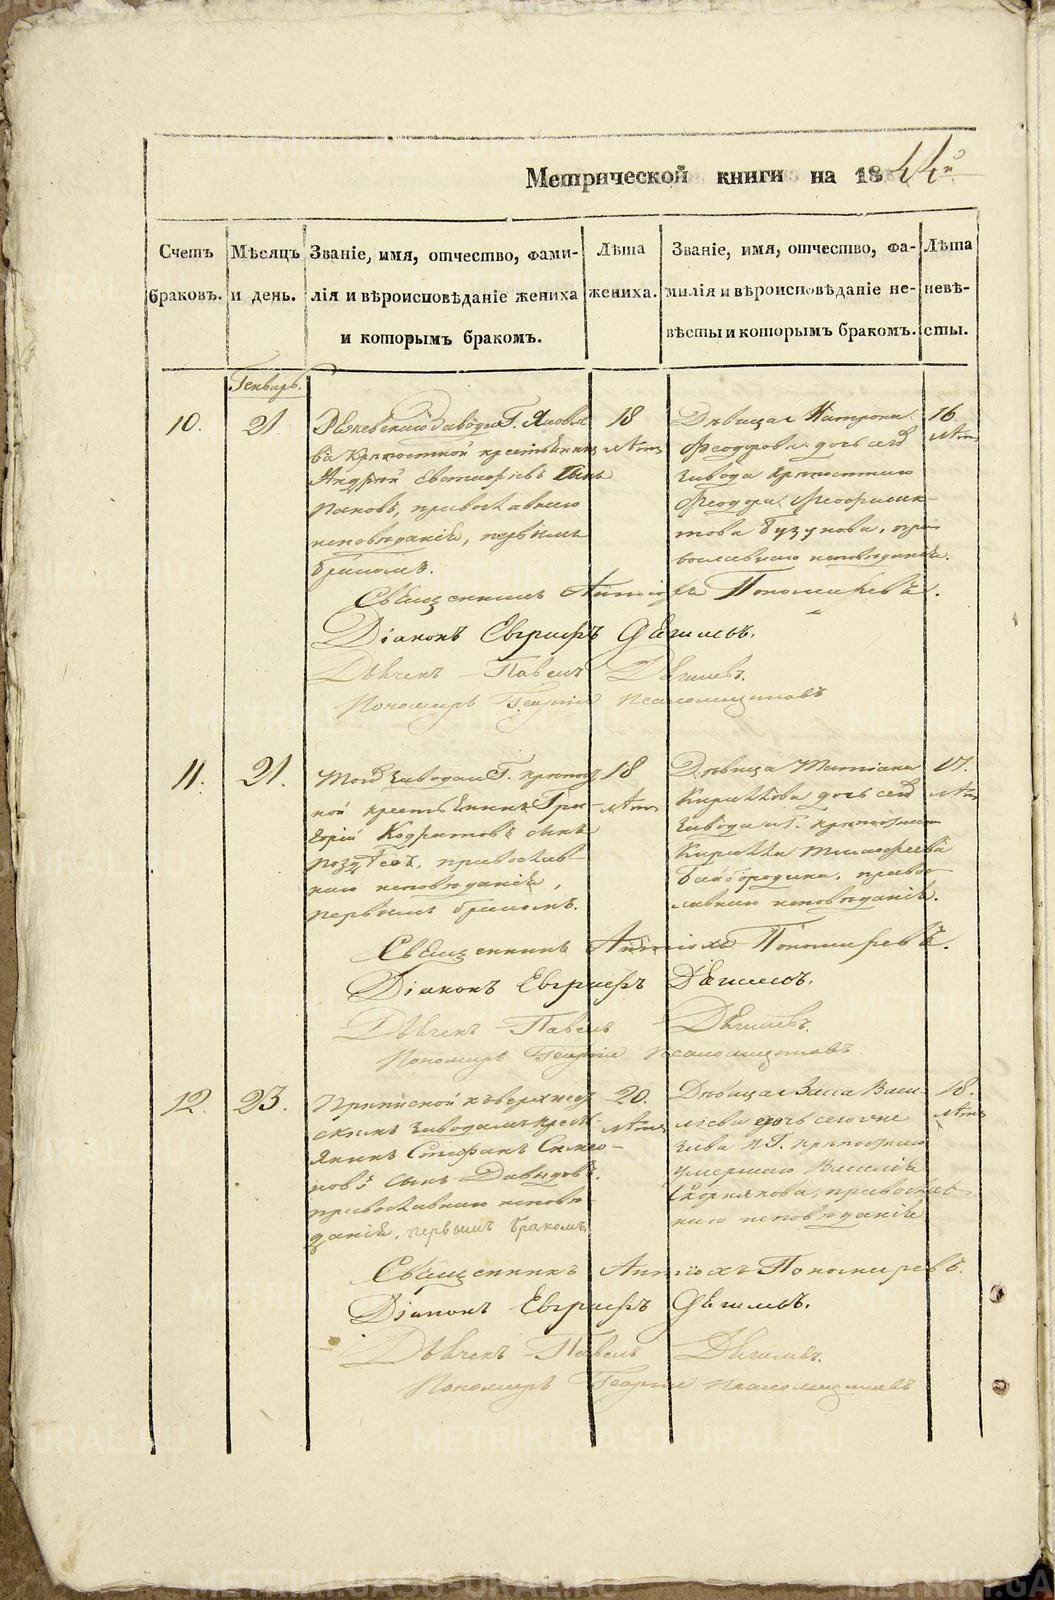 Метрической книги на 1844й
Счетъ браковъ.
Мѣсяцъ и день.
Званіе, имя, отчество, фами-
лія и вѣроисповѣданіе жениха
и которымъ бракомъ.
Лѣта
жениха.
Званіе, имя, отчество, фа-
милія и вѣроисповѣданіе не-
вѣсты и которымъ бракомъ.
Лѣта
невѣ-
сты.
Генварь.
10.
21.
Режевскаго завода Г. Яковле
ва крѣпостной крестьянинъ
Андрей сынъ
Пановъ, православнаго
исповѣданія, первымъ
бракомъ.
18
лѣтъ
Дѣвица Матрона
Феодорова дочь сего
завода крѣпостнаго
Феодора Феофилак-
това Бузунова, пра-
вославнаго исповѣданія.
16
лѣтъ
Священникъ Антіохъ Пономаревъ.
Діаконъ Евграфъ Дягилевъ.
Дьячекъ Павелъ Дягилевъ.
Пономарь Георгій Псаломщиковъ
11.
21.
Того завода Г. крѣпост
ной крестьянинъ Гри-
горій Кодратовъ сынъ
православ-
наго исповѣданія,
первымъ бракомъ.
18
лѣтъ
Дѣвица Татіана
Кириллова дочь сего
завода Г. крѣпостнаго
Кирилла Тимофеева
Байбородина, право-
славнаго исповѣданія.
17.
лѣтъ
Священникъ Антіохъ Пономаревъ.
Діаконъ Евграфъ Дягилевъ.
Дьячекъ Павелъ Дягилевъ.
Пономарь Георгій Псаломщиковъ
12.
23.
Приписной къ Верхнеи
скимъ заводамъ кресть
янинъ Стефанъ
сынъ Давыдовъ,
православнаго исповѣ
данія, первымъ бракомъ.
20.
лѣтъ
Дѣвица Васи-
лієва дочь сего же
Г. крѣпостнаго
умершаго Василія
Скорнякова, православ-
наго исповѣданія
18.
лѣтъ
Священникъ Антіохъ Пономаревъ.
Діаконъ Евграфъ Дягилевъ.
Дьячекъ Павелъ Дягилевъ.
Пономарь Георгій Псаломщиковъ
METRIKI.GASO-URAL.RU